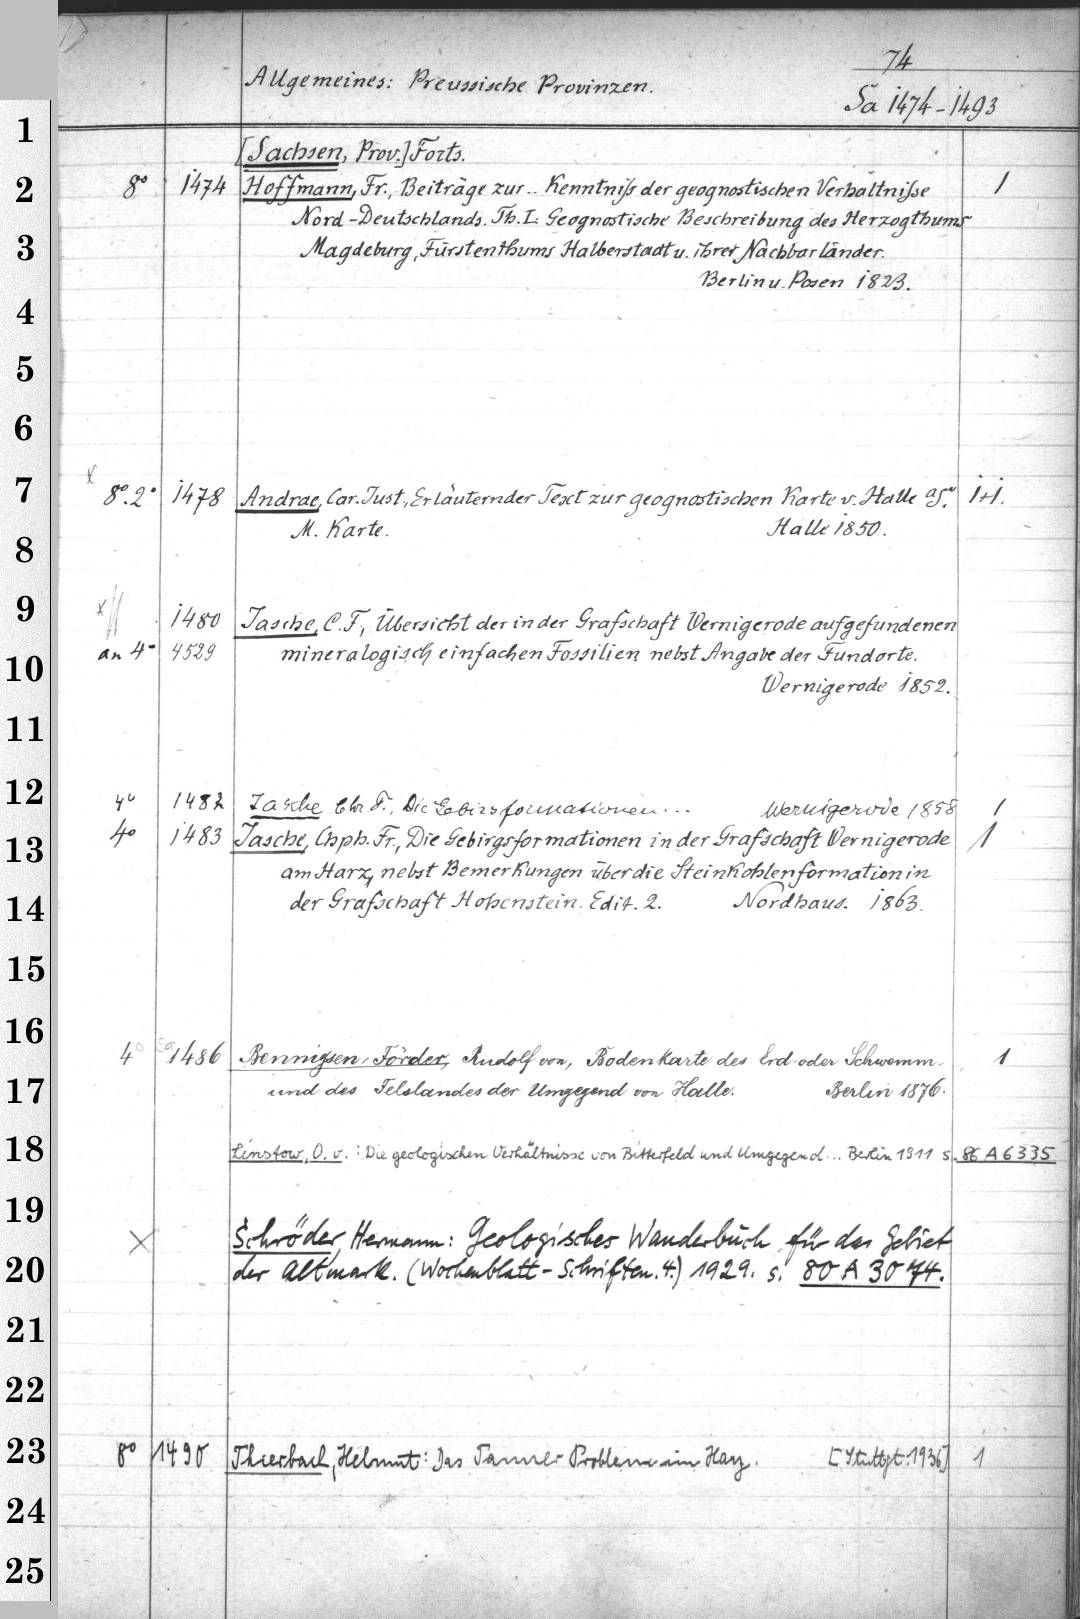 74
Allgemeines: Preussische Provinzen.
Sa 1474-1493
1
[Sachsen, Prov.] Forts.
2 8° 1474 Hoffmann, Fr., Beiträge zur .. Kenntniß der geognostischen Verhältniße 1
Nord-Deutschlands. Th. I: Geognostische Beschreibung des Herzogthums
3 Magdeburg, Fürstenthums Halberstadt u. ihrer Nachbarländer.
Berlin u. Posen 1823.
4
5
6
7 x 8°. 2° 1478 Andrae, Car. Just., Erläuternder Text zur geognostischen Karte v. Halle 1+1.
M. Karte. Halle 1850.
8
9 x 1480 Jasche, C. F., Übersicht der in der Grafschaft Wernigerode aufgefundenen
10 an 4° 4529 mineralogisch einfachen Fossilien nebst Angabe der Fundorte.
Wernigerode 1852.
11
12 4° 1482 Jasche Chr. F., Die Gebirgsformationen... Wernigerode 1858 1
13 4° 1483 Jasche, Chph. Fr., Die Gebirgsformationen in der Grafschaft Wernigerode 1
am Harz, nebst Bemerkungen über die Steinkohlenformation in
14 der Grafschaft Hohenstein. Edit. 2. Nordhaus. 1863.
15
16
4° Sa 1486 Bennigsen-Förder, Rudolf von, Bodenkarte des Erd- oder Schwemm- 1
17 und des Felslandes der Umgegend von Halle. Berlin 1876.
18 Linstow, O. v.: Die geologischen Verhältnisse von Bitterfeld und Umgegend... Berlin 1911 s. 86 A 6335
19
x Schröder, Hermann: Geologisches Wanderbuch für das Gebiet
20 der Altmark. (Wochenblatt-Schriften. 4.) 1929. s. 80 A 3074.
21
22
23 8° 1490 Thierbach, Helmut: Das Tanner Problem im Harz. [Stuttgt. 1936] 1
24
25